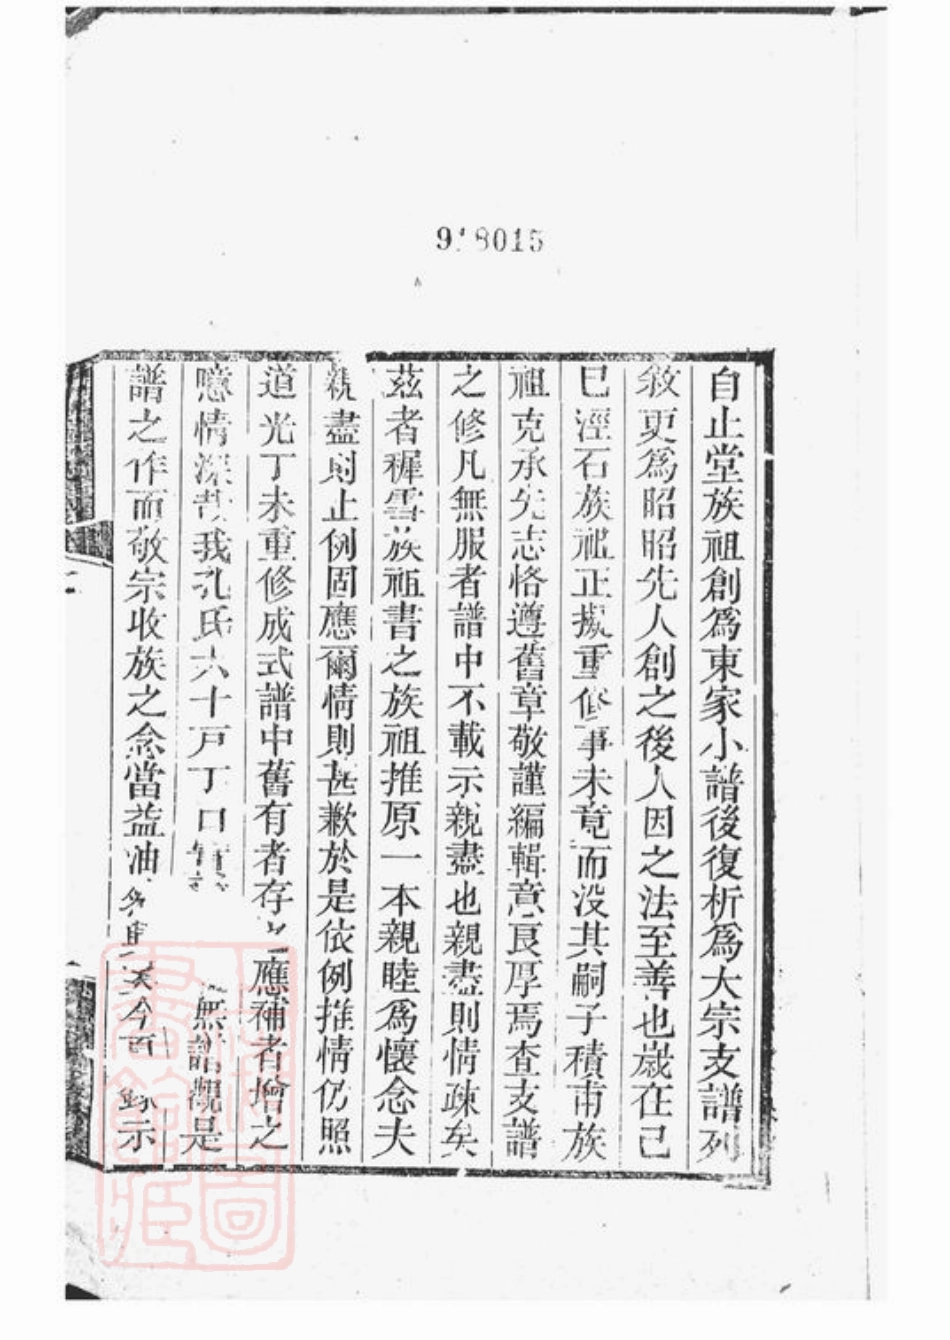 918015
自止堂族祖創爲東家小譜後復析爲大宗支譜列
敘更爲昭昭先人創之後人因之法至善也歲在己
巳涇石族祖正擬重修事未竟而没其嗣子積甫族
祖克承先志恪遵舊章敬謹編輯意良厚焉查支譜
之修凡無服者譜中不載示親盡也親盡則情疎矣
茲者穉雪族祖書之族祖推原一本親睦爲懷念夫
親盡則止例固應爾情則甚歉於是依例推情仍照
道光丁未重修成式譜中舊有者存之應補者增之
噫情深哉我孔氏六十戸丁口無譜觀是
譜之作而敬宗收族之念當益油然今示